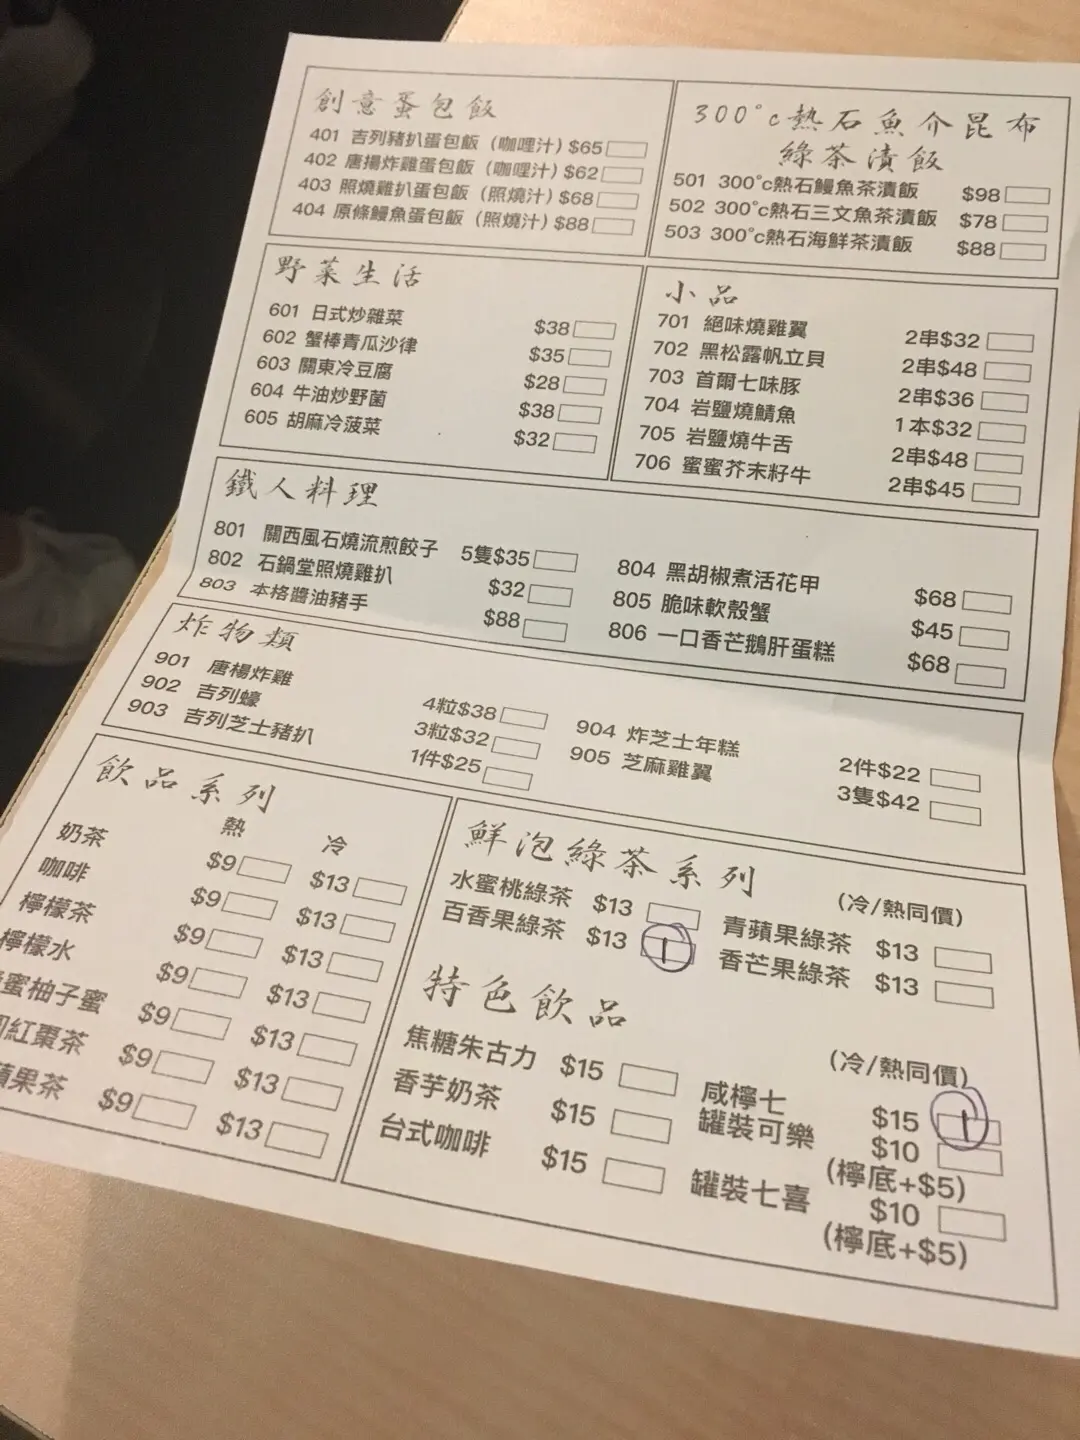 創意蛋包飯
401 吉列豬扒蛋包飯（咖哩汁）$65
402 唐揚炸雞蛋包飯（咖哩汁）$62
403 照燒雞扒蛋包飯（照燒汁）$68
404 原條鰻魚蛋包飯（照燒汁）$88
300°c熱石魚介昆布
綠茶漬飯
501 300°c熱石鰻魚茶漬飯 $98
502 300°c熱石三文魚茶漬飯 $78
503 300°c熱石海鮮茶漬飯 $88
野菜生活
601 日式炒雜菜 $38
602 蟹棒青瓜沙律 $35
603 關東冷豆腐 $28
604 牛油炒野菌 $38
605 胡麻冷菠菜 $32
小品
701 絕味燒雞翼 2串$32
702 黑松露帆立貝 2串$48
703 首爾七味豚 2串$36
704 岩鹽燒鯖魚 1本$32
705 岩鹽燒牛舌 2串$48
706 蜜蜜芥末籽牛 2串$45
鐵人料理
801 關西風石燒流煎餃子 5隻$35
802 石鍋堂照燒雞扒 $32
803 本格醬油豬手 $88
804 黑胡椒煮活花甲 $68
805 脆味軟殼蟹 $45
806 一口香芒鵝肝蛋糕 $68
炸物類
901 唐楊炸雞 4粒$38
902 吉列蠔 3粒$32
903 吉列芝士豬扒 1件$25
904 炸芝士年糕 2件$22
905 芝麻雞翼 3隻$42
飲品系列
熱 冷
奶茶 $9 $13
咖啡 $9 $13
檸檬茶 $9 $13
檸檬水 $9 $13
蜜柚子蜜 $9 $13
紅棗茶 $9 $13
蘋果茶 $9 $13
鮮泡綠茶系列
(冷/熱同價)
水蜜桃綠茶 $13
百香果綠茶 $13 1
青蘋果綠茶 $13
香芒果綠茶 $13
特色飲品
(冷/熱同價)
焦糖朱古力 $15
香芋奶茶 $15
台式咖啡 $15
咸檸七 $15 1
罐裝可樂 $10
(檸底+$5)
罐裝七喜 $10
(檸底+$5)